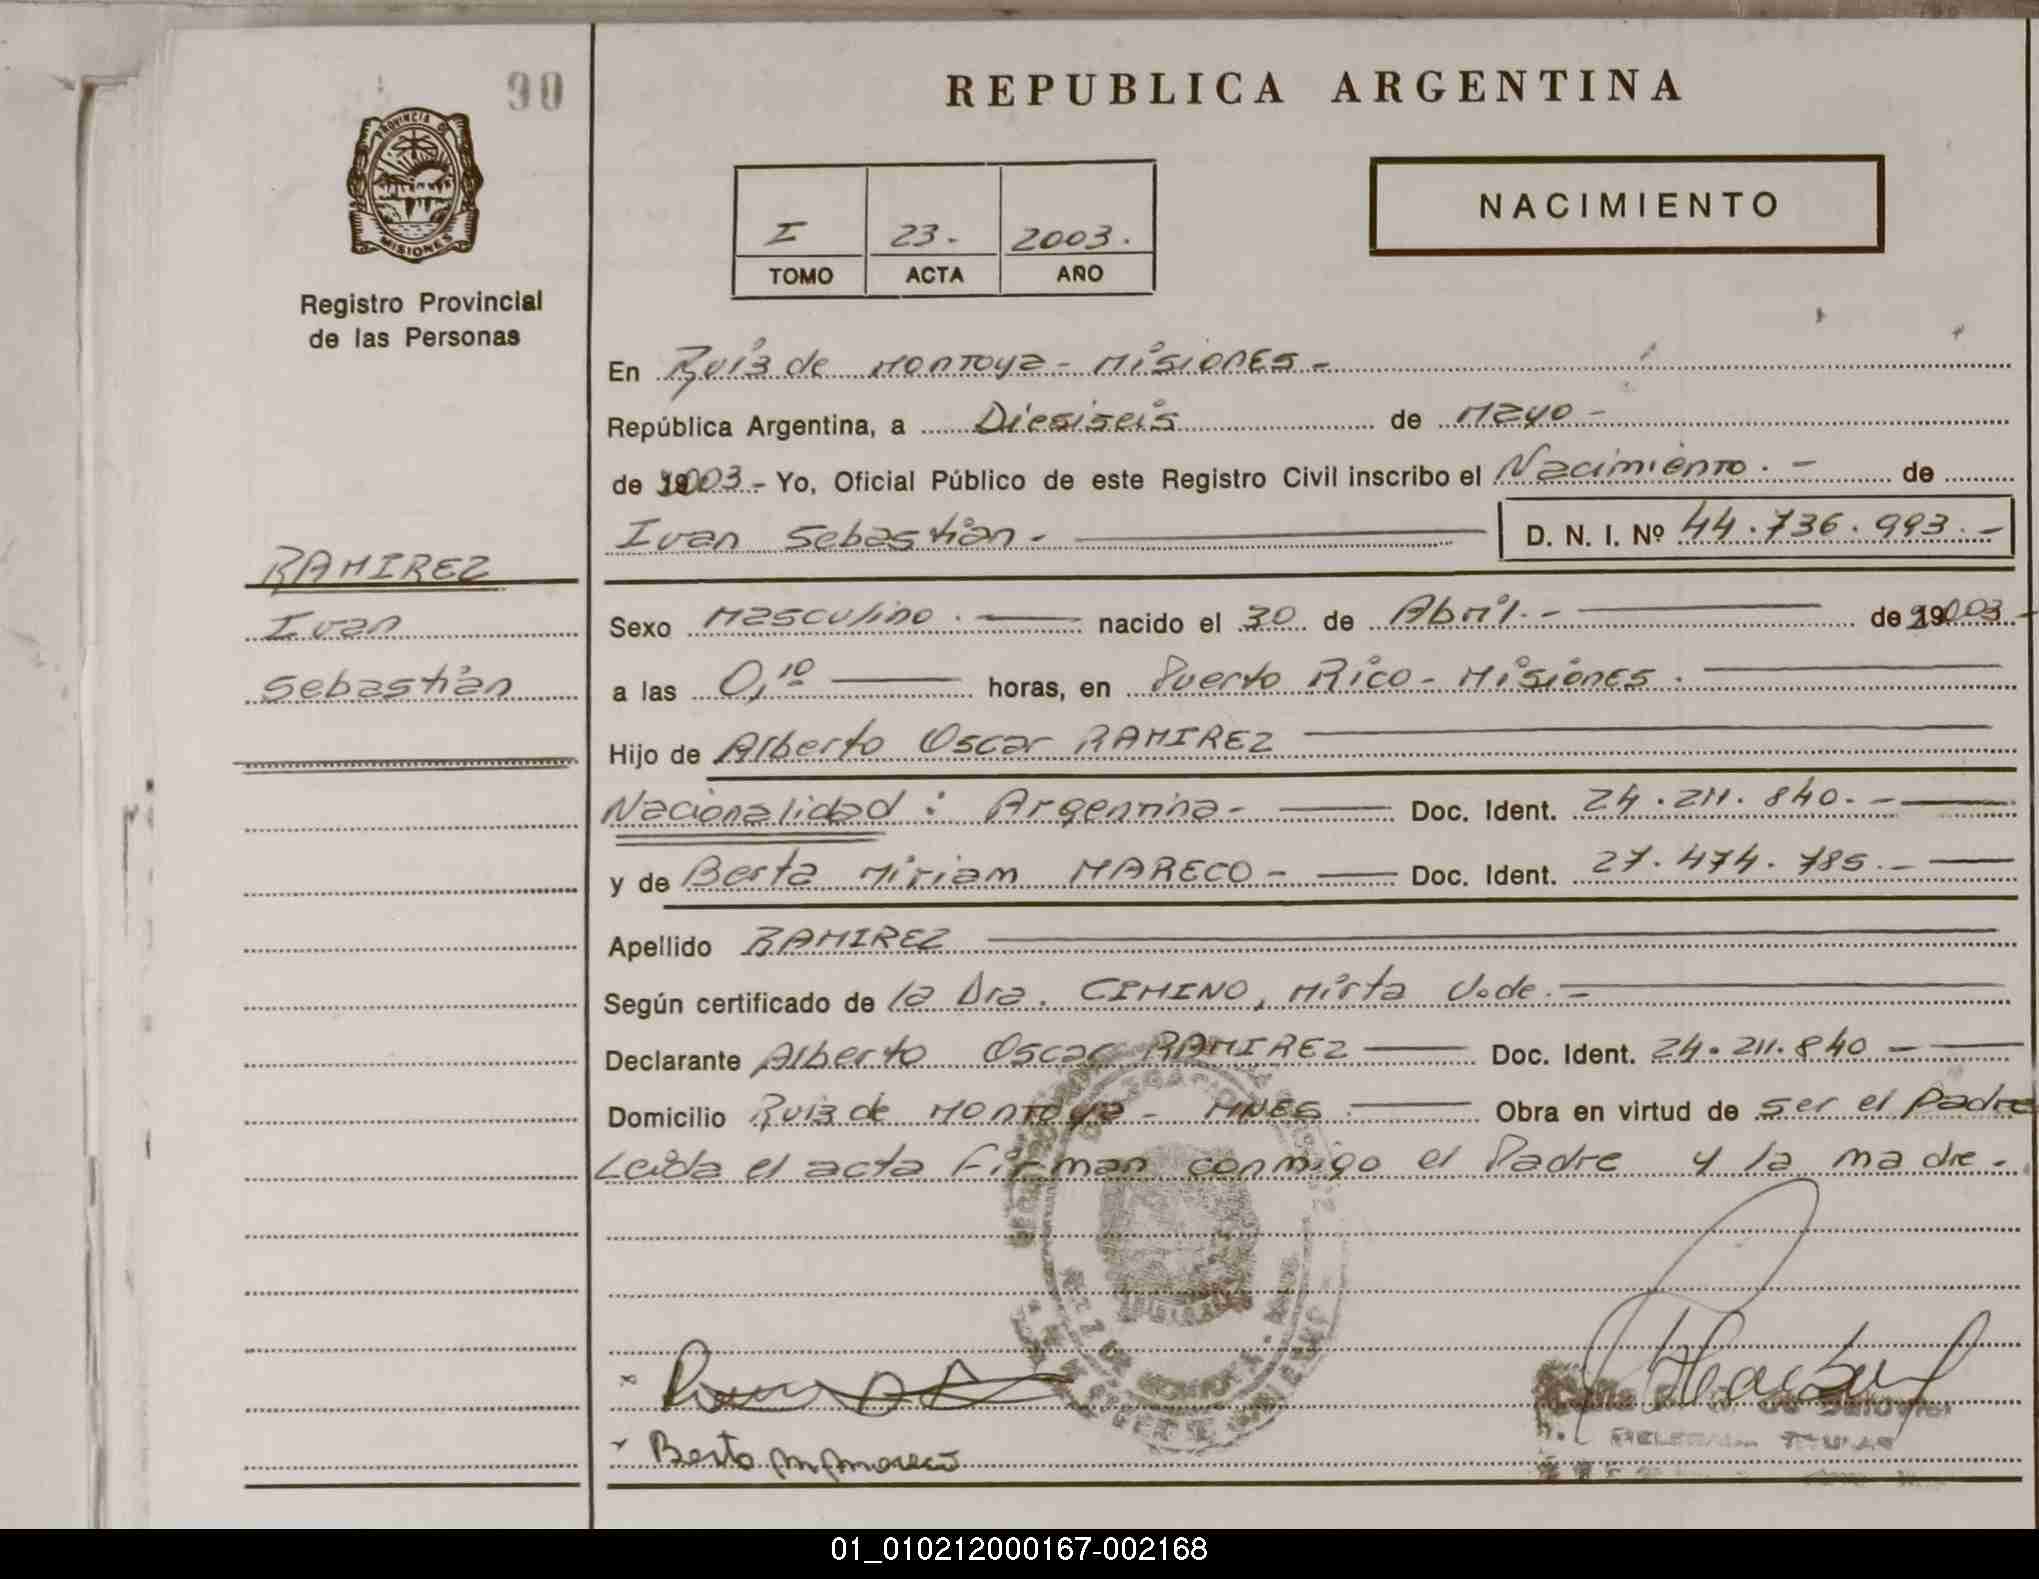 90
REPUBLICA ARGENTINA
PROVINCIA DE
MISIONES
Registro Provincial
de las Personas
NACIMIENTO
I 23.- 2003.
TOMO ACTA AÑO
En Ruíz de Montoya - Misiones -
República Argentina, a Diesiseis de Mayo -
de 2003.- Yo, Oficial Público de este Registro Civil inscribo el Nacimiento. - de
Ivan Sebastián - D. N. I. Nº 44.736.993.-
RAMIREZ
Ivan
Sebastián
Sexo Masculino. nacido el 30 de Abril.- de 2003.-
a las 0,10 horas, en Puerto Rico - Misiones.
Hijo de Alberto Oscar RAMIREZ
Nacionalidad: Argentina - Doc. Ident. 24.211.840.-
y de Berta Miriam MARECO - Doc. Ident. 27.474.785.-
Apellido RAMIREZ
Según certificado de la Dra. CIMINO, Mirta V. de.-
Declarante Alberto Oscar RAMIREZ Doc. Ident. 24.211.840 -
Domicilio Ruiz de Montoya - MNES. Obra en virtud de ser el Padre
Leída el acta firman conmigo el Padre y la madre.
Berta M Mareco
01_010212000167-002168